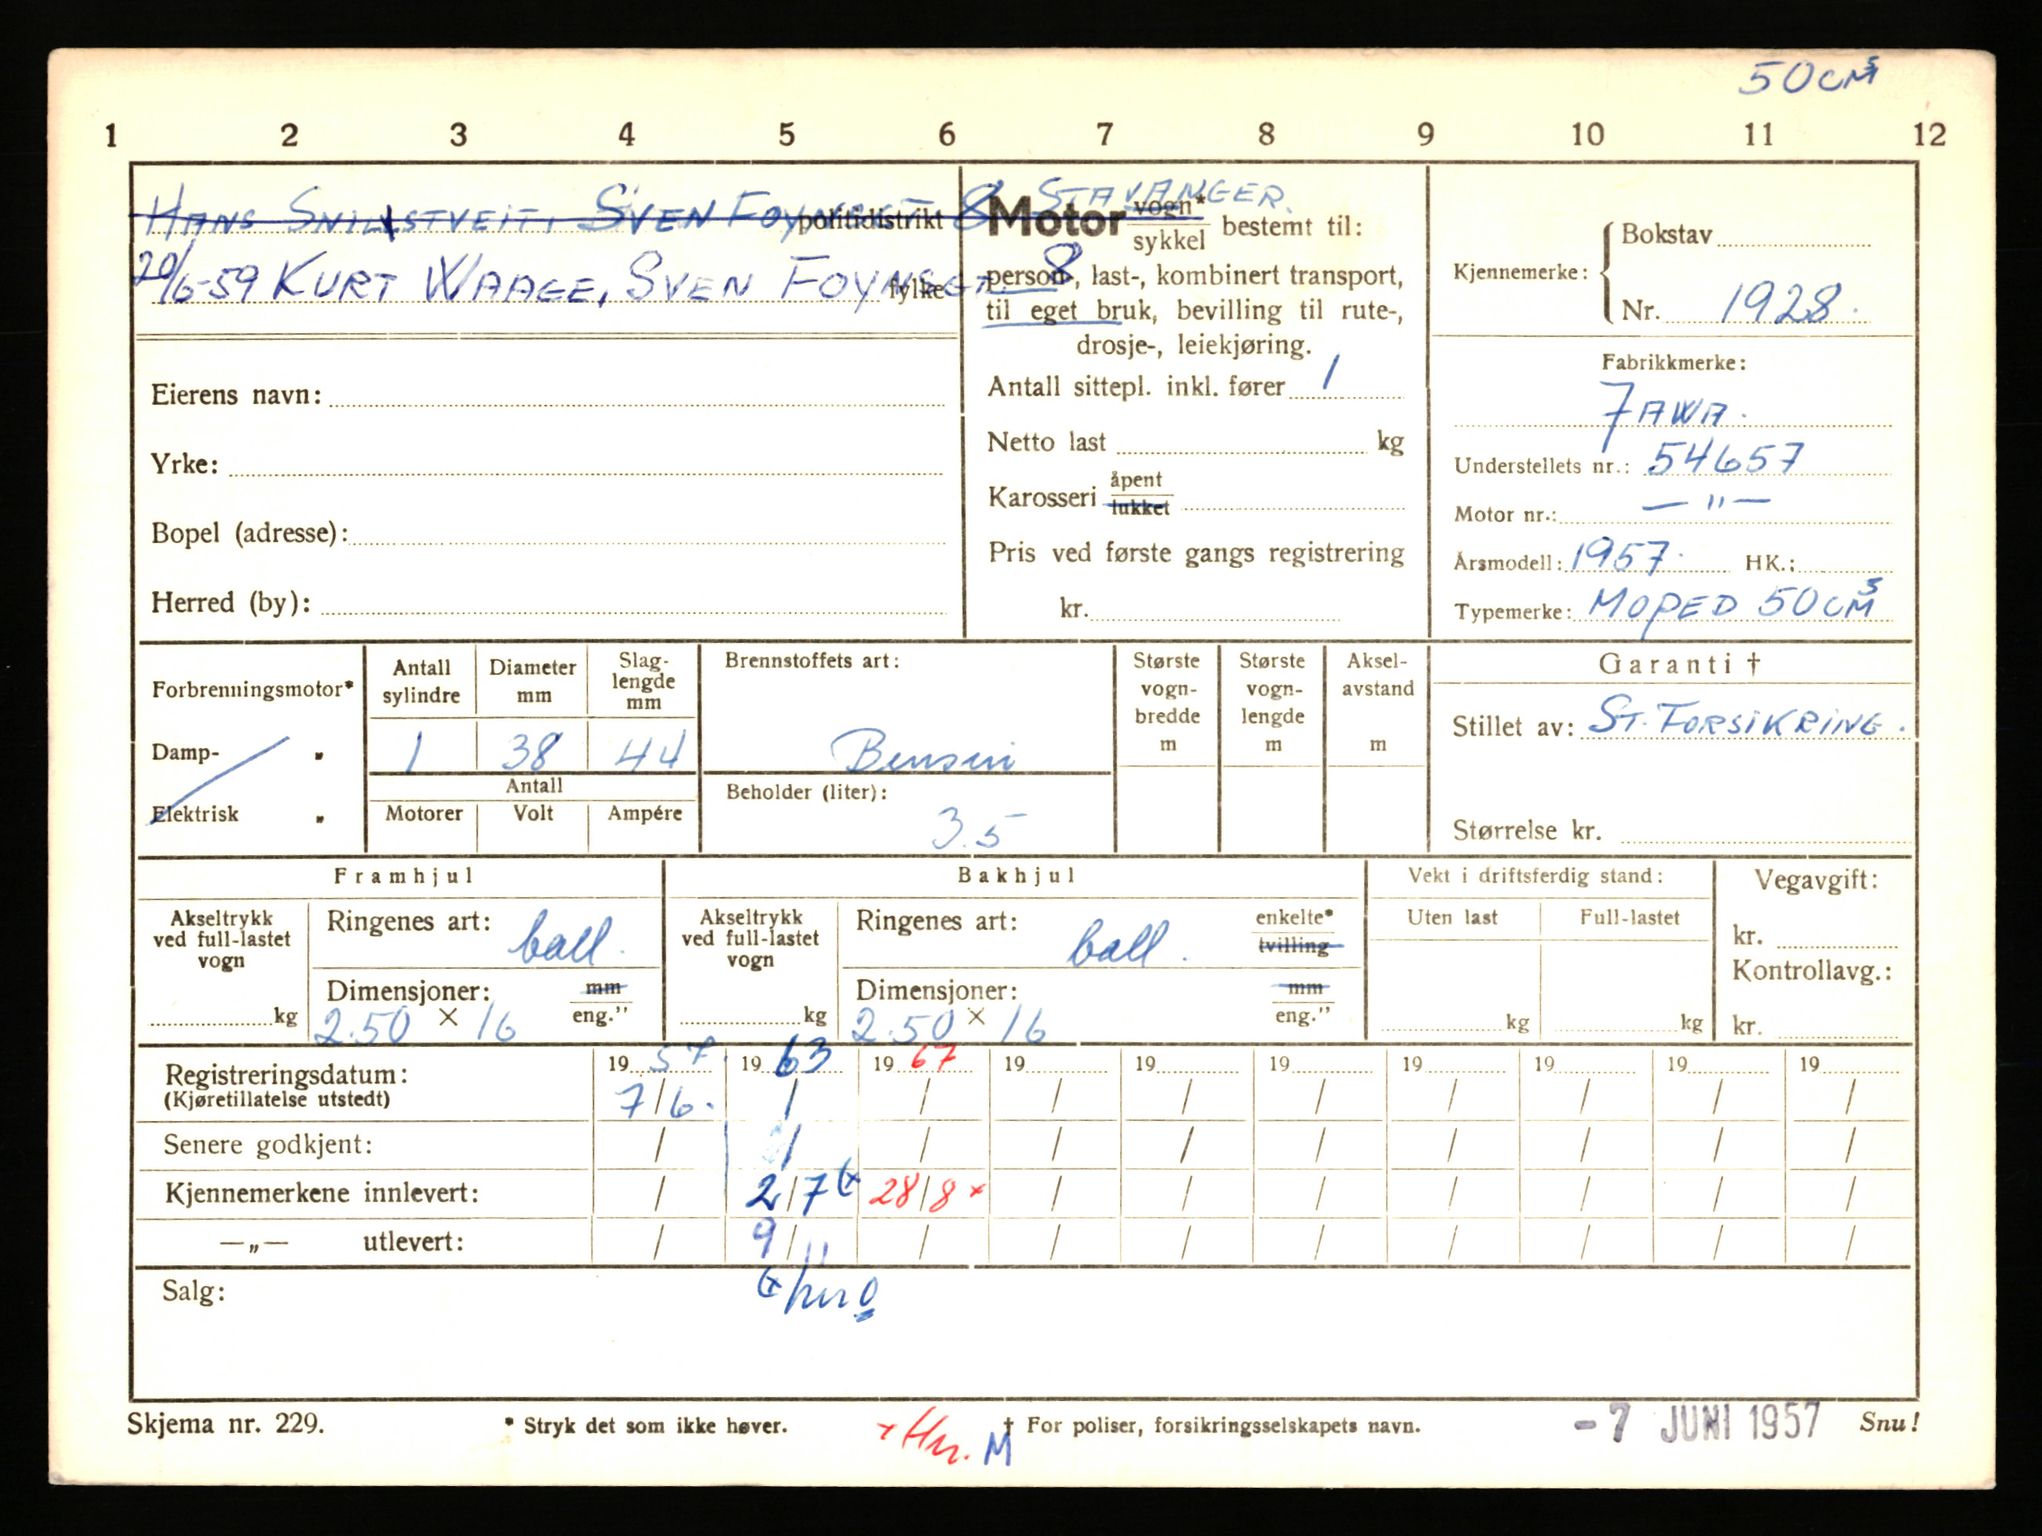 50 CM³
1 2 3 4 5 6 7 8 9 10 11 12
HANS SNILSTVEIT, SVEN FOYNSGT 8 STAVANGER.
politidistrikt
20/6-59 KURT WAAGE, SVEN FOYNSGT. 8
fylke
Eierens navn:
Yrke:
Bopel (adresse):
Herred (by):
Motor vogn* sykkel bestemt til:
person-, last-, kombinert transport,
til eget bruk, bevilling til rute-,
drosje-, leiekjøring.
Antall sittepl. inkl. fører 1
Netto last kg
Karosseri åpent lukket
Pris ved første gangs registrering
kr.
Kjennemerke: Bokstav
Nr. 1928.
Fabrikkmerke:
JAWA.
Understellets nr.: 54657
Motor nr.: — " —
Årsmodell: 1957. HK.:
Typemerke: MOPED 50 CM³
Forbrenningsmotor*
Damp- „
Elektrisk „
Antall sylindre
1
Diameter mm
38
Slag-lengde mm
44
Antall
Motorer Volt Ampére
Brennstoffets art:
Bensin
Beholder (liter):
3.5
Største vogn-bredde m
Største vogn-lengde m
Aksel-avstand m
Garanti †
Stillet av: ST. FORSIKRING.
Størrelse kr.
Framhjul
Akseltrykk ved full-lastet vogn
kg
Ringenes art: ball.
Dimensjoner: mm eng."
2.50 × 16
Bakhjul
Akseltrykk ved full-lastet vogn
kg
Ringenes art: ball. enkelte* tvilling
Dimensjoner: mm eng."
2.50 × 16
Vekt i driftsferdig stand:
Uten last Full-lastet
kg kg
Vegavgift:
kr.
Kontrollavg.:
kr.
Registreringsdatum: 19 57 19 63 19 67 19 19 19 19 19 19 19
(Kjøretillatelse utstedt) 7/6. / / / / / / / / /
Senere godkjent: / / / / / / / / / /
Kjennemerkene innlevert: / 2/7 (x 28/8 x / / / / / / /
—„— utlevert: / 9/11 / / / / / / / /
Salg:
Skjema nr. 229.
* Stryk det som ikke høver.
† For poliser, forsikringsselskapets navn.
M
-7 JUNI 1957
Snu!